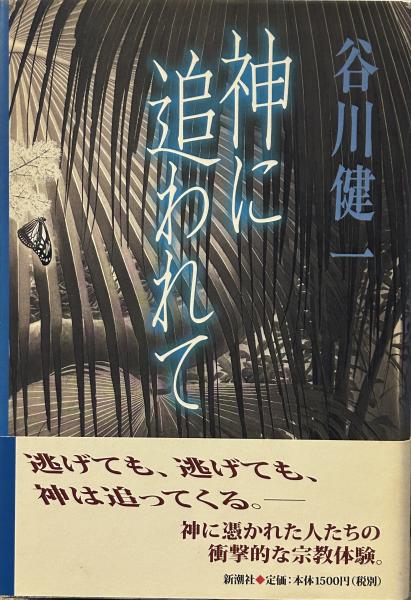 谷川健一
神に
追われて
逃げても、逃げても、
神は追ってくる。―
神に憑かれた人たちの
衝撃的な宗教体験。
新潮社◆定価：本体1500円（税別）